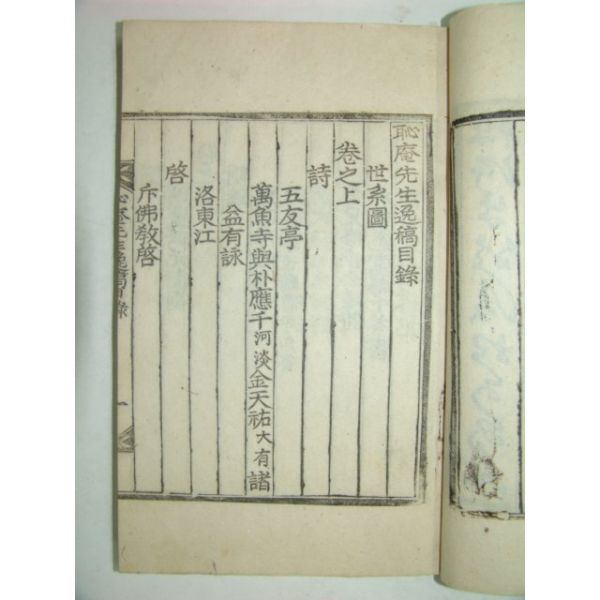 恥庵先生逸稿目錄
世系圖
卷之上
詩
五友亭
萬魚寺與朴應千河淡金天祐大有諸
益有詠
洛東江
啓
斥佛敎啓